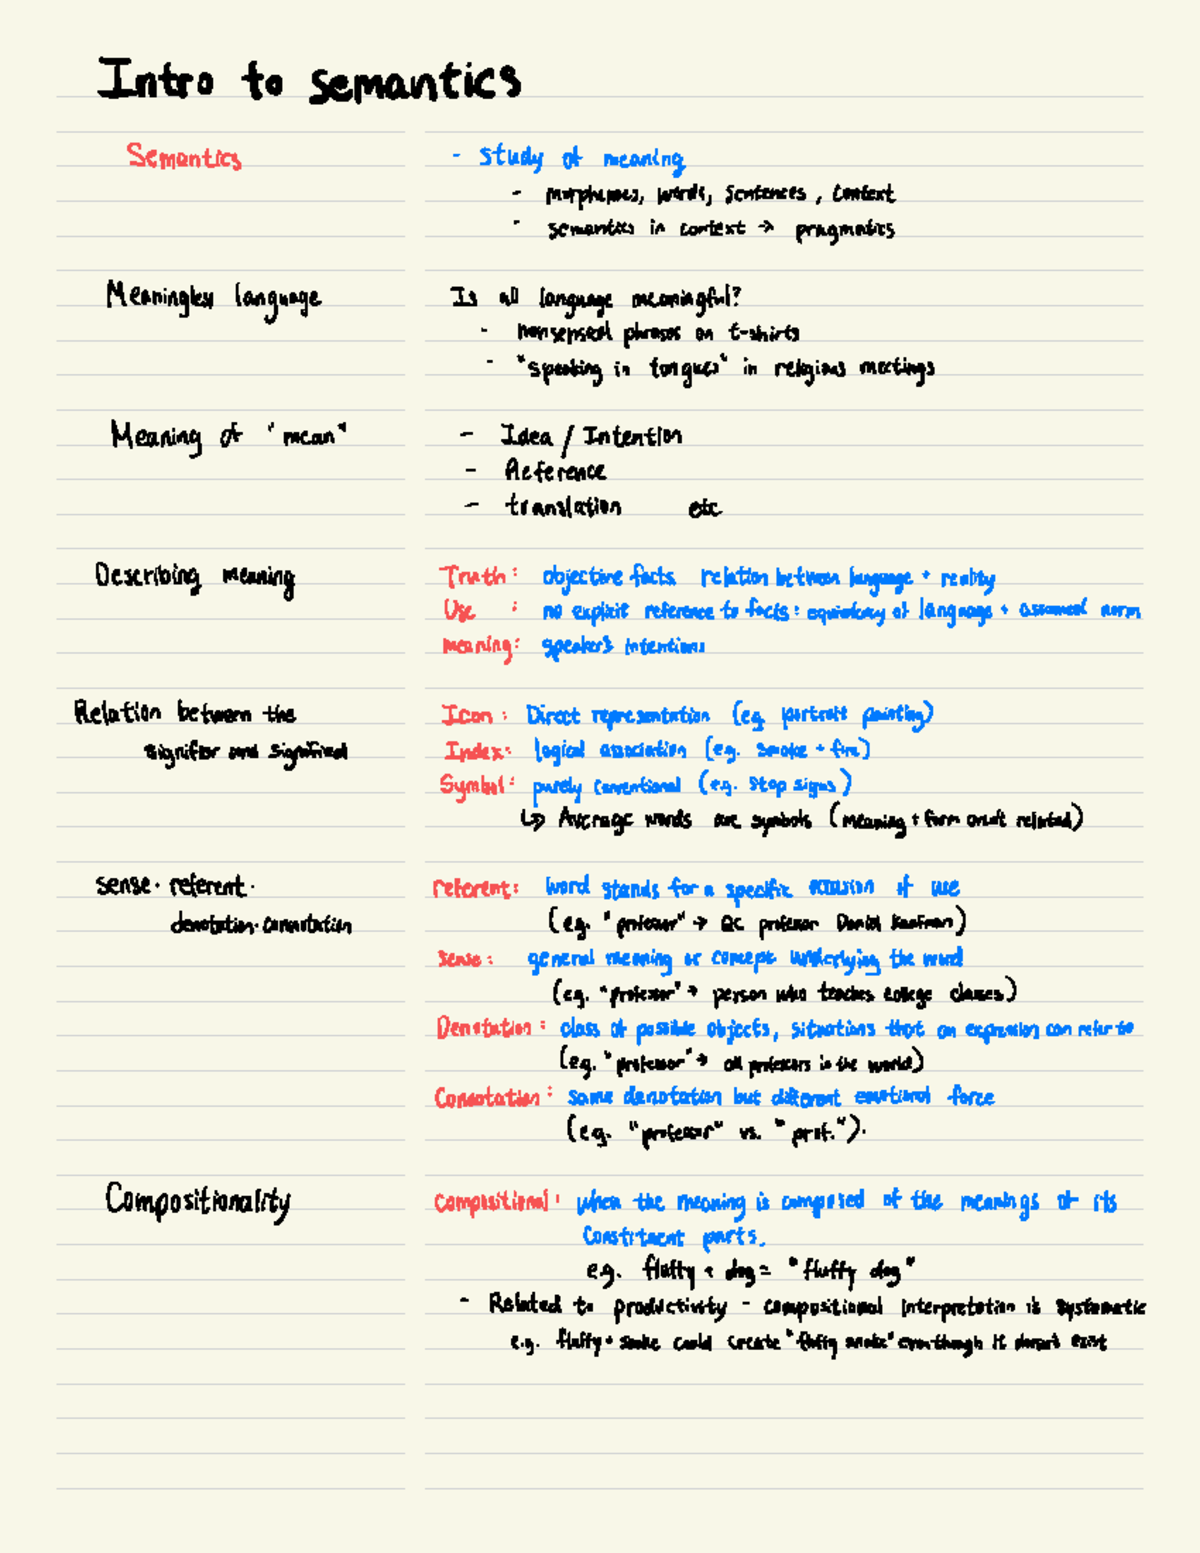 Intro to semantics
Semantics
- study of meaning
- morphemes, words, sentences, context
- semantics in context → pragmatics
Meaningless language
Is all language meaningful?
- nonsensical phrases on t-shirts
- "speaking in tongues" in religious meetings
Meaning of "mean"
- Idea / Intention
- Reference
- translation etc
Describing meaning
Truth: objective facts relation between language + reality
Use : no explicit reference to facts: of language + assumed norm
meaning: speaker's intentions
Relation between the
signifier and signified
Icon: Direct representation (e.g. portrait painting)
Index: logical association (e.g. smoke + fire)
Symbol: purely conventional (e.g. stop signs)
↳ Average words are symbols (meaning + form aren't related)
sense · referent ·
denotation · connotation
referent: word stands for a specific occasion of use
(e.g. "professor" → QC professor Daniel Kaufman)
sense: general meaning or concept underlying the word
(e.g. "professor" → person who teaches college classes)
Denotation: class of possible objects, situations that an expression can refer to
(e.g. "professor" → all professors in the world)
Connotation: same denotation but different emotional force
(e.g. "professor" vs. "prof.").
Compositionality
compositional: when the meaning is composed of the meanings of its
constituent parts.
e.g. fluffy + dog = "fluffy dog"
- Related to productivity - compositional interpretation is systematic
e.g. fluffy + snake could create "fluffy snake" even though it doesn't exist